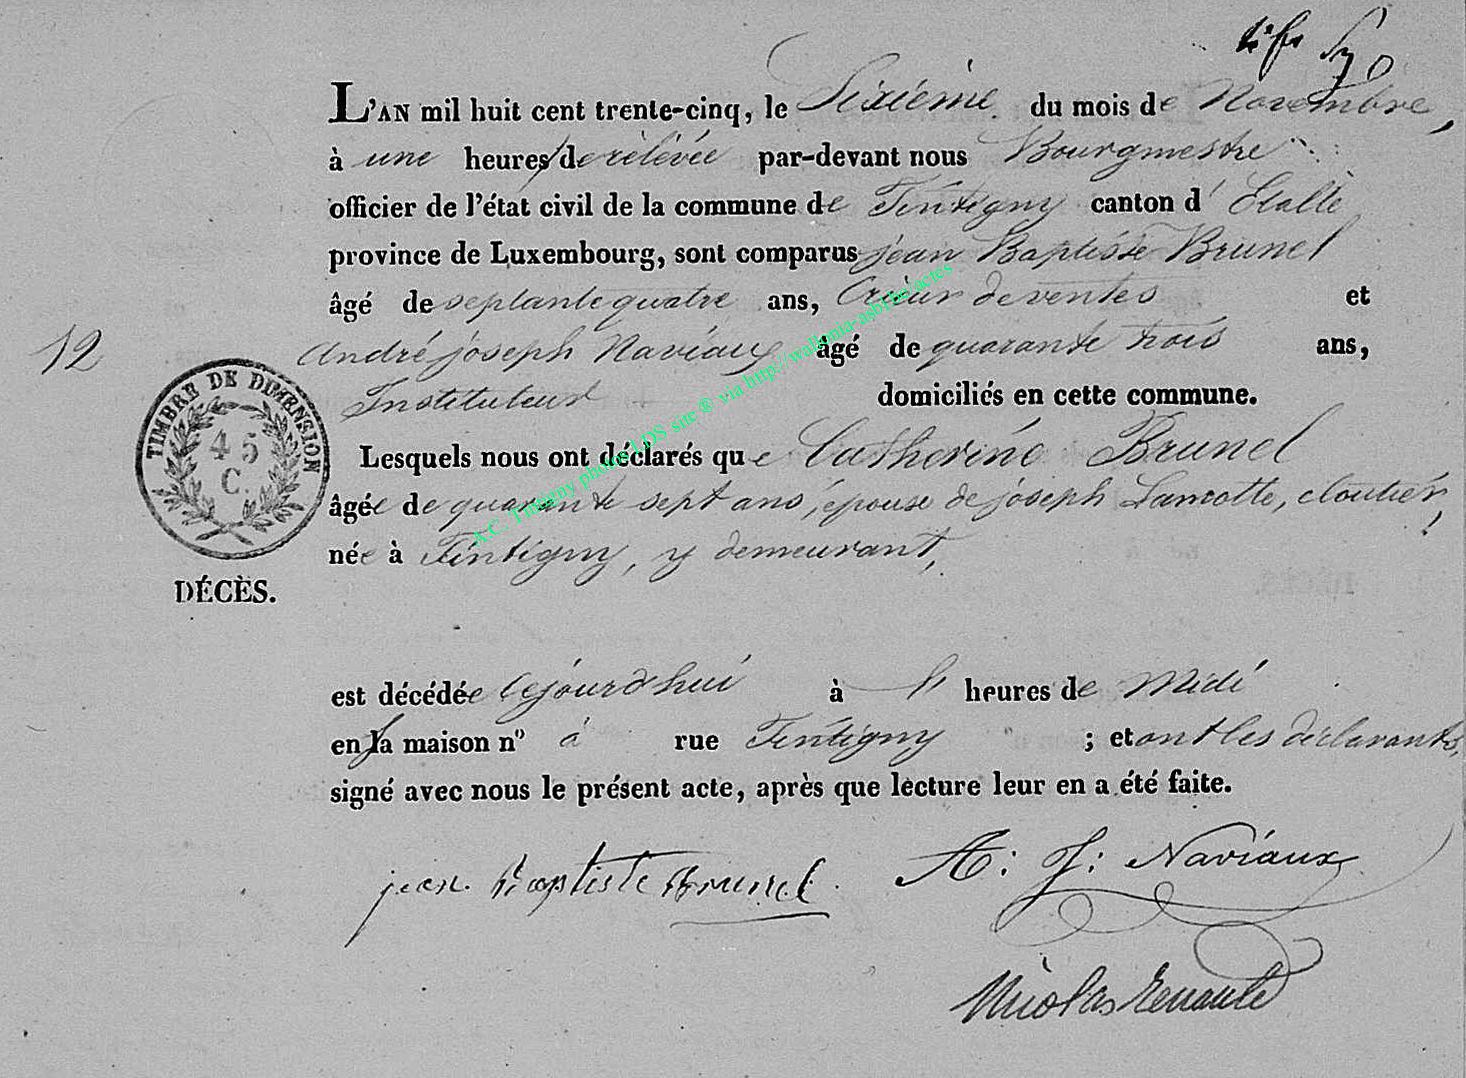 L'AN mil huit cent trente-cinq, le Sixième du mois de Novembre,
à une heures de rélévée par-devant nous Bourgmestre
officier de l'état civil de la commune de Tintigny canton d'Etalle
province de Luxembourg, sont comparus jean Baptiste Brunel
âgé de septante quatre ans, Crieur de ventes et
André joseph Naviaux âgé de quarante trois ans,
12
Instituteur domiciliés en cette commune.
TIMBRE DE DIMENSION
45
C.
Lesquels nous ont déclarés que Catherine Brunel
âgée de quarante sept ans, épouse de joseph Lamotte, cloutier,
née à Tintigny, y demeurant,
DÉCÈS.
est décédée cejourd'hui à heures de Midi
en la maison nº à rue Tintigny ; et ont les déclarants,
signé avec nous le présent acte, après que lecture leur en a été faite.
jean Baptiste Brunel A: J: Naviaux
Nicolas Renauld
A.C. Tintigny photos LDS site ® via http://wallonia-asbl.be/actes